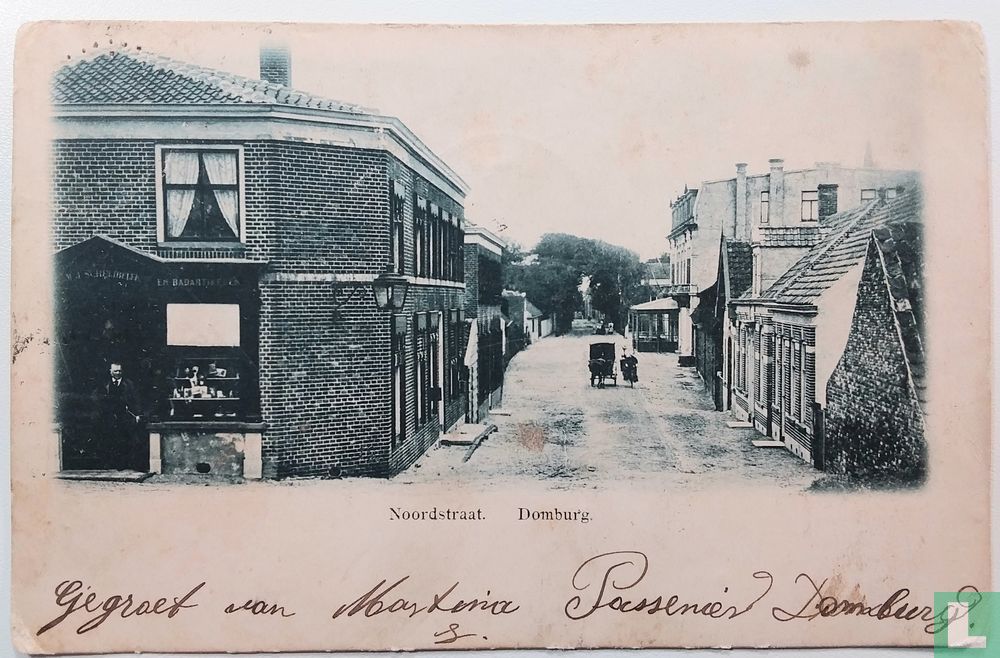 EN BADARTIKELEN
Noordstraat. Domburg.
Gegroet van Martina Passenier Domburg.
L